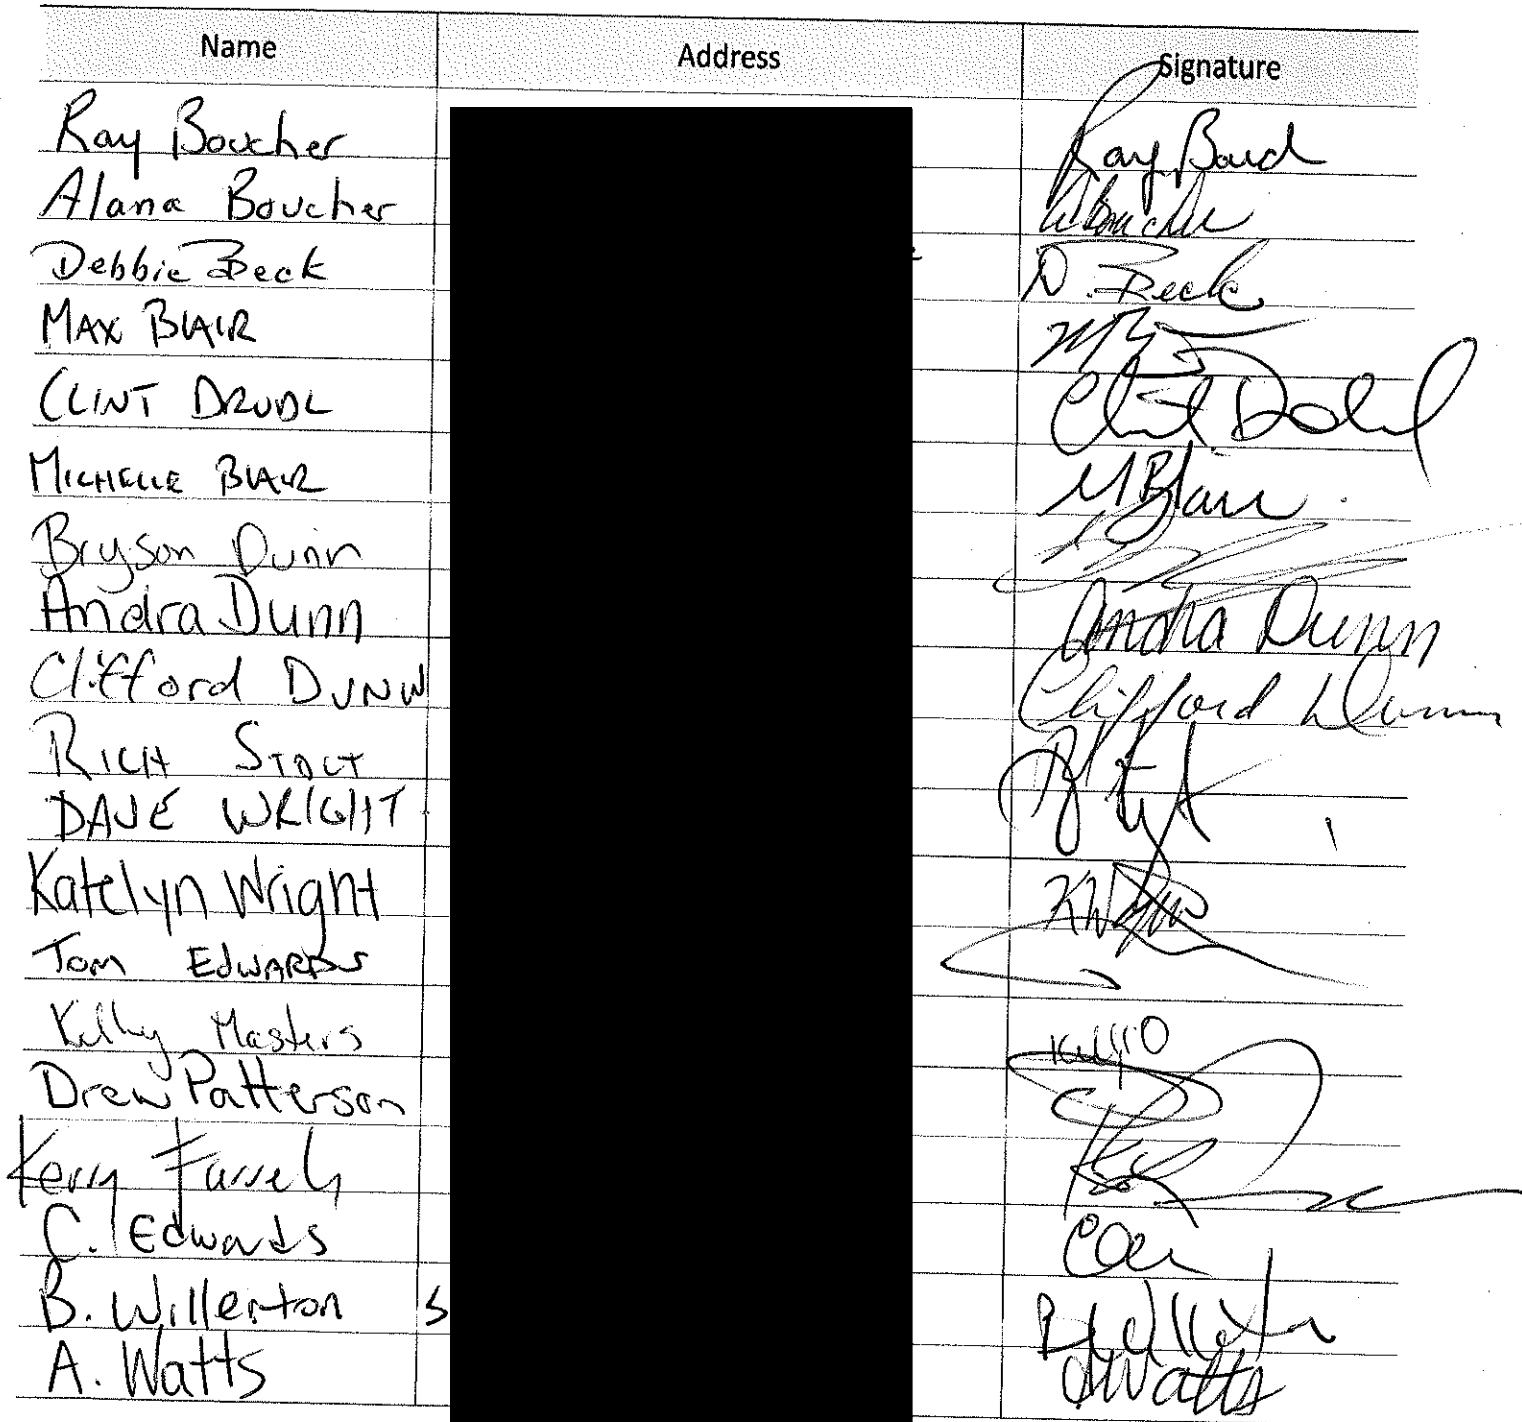 Name Address Signature
Ray Boucher Ray Bouch
Alana Boucher A Boucher
Debbie Beck D. Beck
MAX BLAIR
CLINT DRUDL Clint
MICHELLE BLAIR M Blair
Bryson Dunn
Andra Dunn Andra Dunn
Clifford DUNN Clifford Dunn
RICH STOLT
DAVE WRIGHT
Katelyn Wright
TOM EDWARDS
Kelly Masters
Drew Patterson
Kerry
C. Edwards
B. Willerton S
A. Watts A Watts